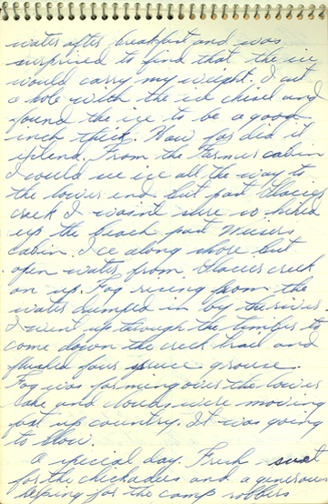 water after breakfast and was
surprised to find that the ice
would carry my weight. I cut
a hole with the ice chisel and
found the ice to be a good
inch thick. How far did it
extend. From the Farmer cabin
I could see ice all the way to
the lower end but past Glacier
creek I wasn't sure so hiked
up the beach past
cabin. Ice along shore but
open water from Glacier creek
on up. Fog rising from the
water dumped in by the river.
I went up through the timber to
come down the creek trail and
flushed four spruce grouse.
Fog was forming over the lower
lake and clouds were moving
past up country. It was going
to blow.
A special day. Fresh suet
for the chickadees and a generous
helping for the camp robbers